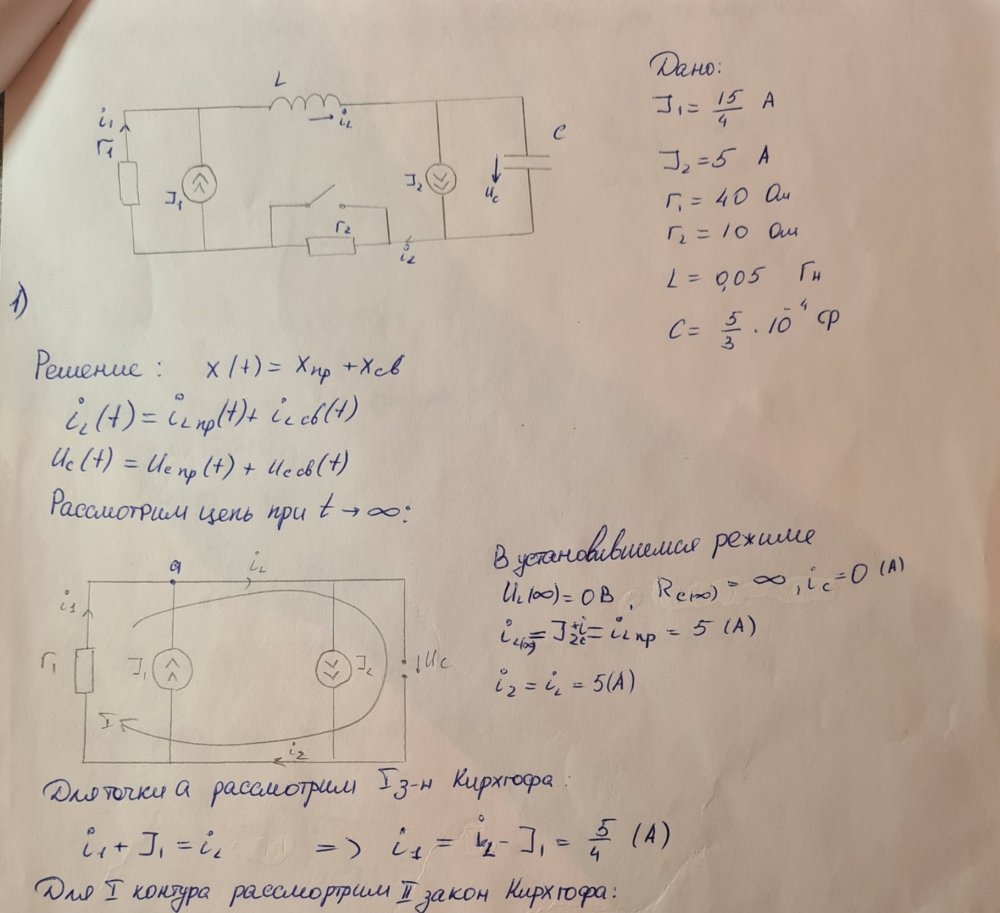 L
i₁
r₁
J₁
i_L
r₂
i₂
J₂
u_c
C
Дано:
J₁ = 15/4 А
J₂ = 5 А
r₁ = 40 Ом
r₂ = 10 Ом
L = 0,05 Гн
C = 5/3 · 10⁻⁴ ф
1)
Решение: x(t) = x пр + x св
i_L(t) = i_L пр(t) + i_L св(t)
u_c(t) = u_c пр(t) + u_c св(t)
Рассмотрим цепь при t → ∞:
a
i_L
i₁
r₁
J₁
J₂
u_c
I
i₂
В установившемся режиме
U_L(∞) = 0 В, R_C(∞) = ∞, i_c = 0 (А)
i_L(∞) = J₂ + i_c = i_L пр = 5 (А)
i₂ = i_L = 5 (А)
Для точки a рассмотрим I з-н Кирхгофа:
i₁ + J₁ = i_L => i₁ = i_L - J₁ = 5/4 (А)
Для I контура рассмортрим II закон Кирхгофа: